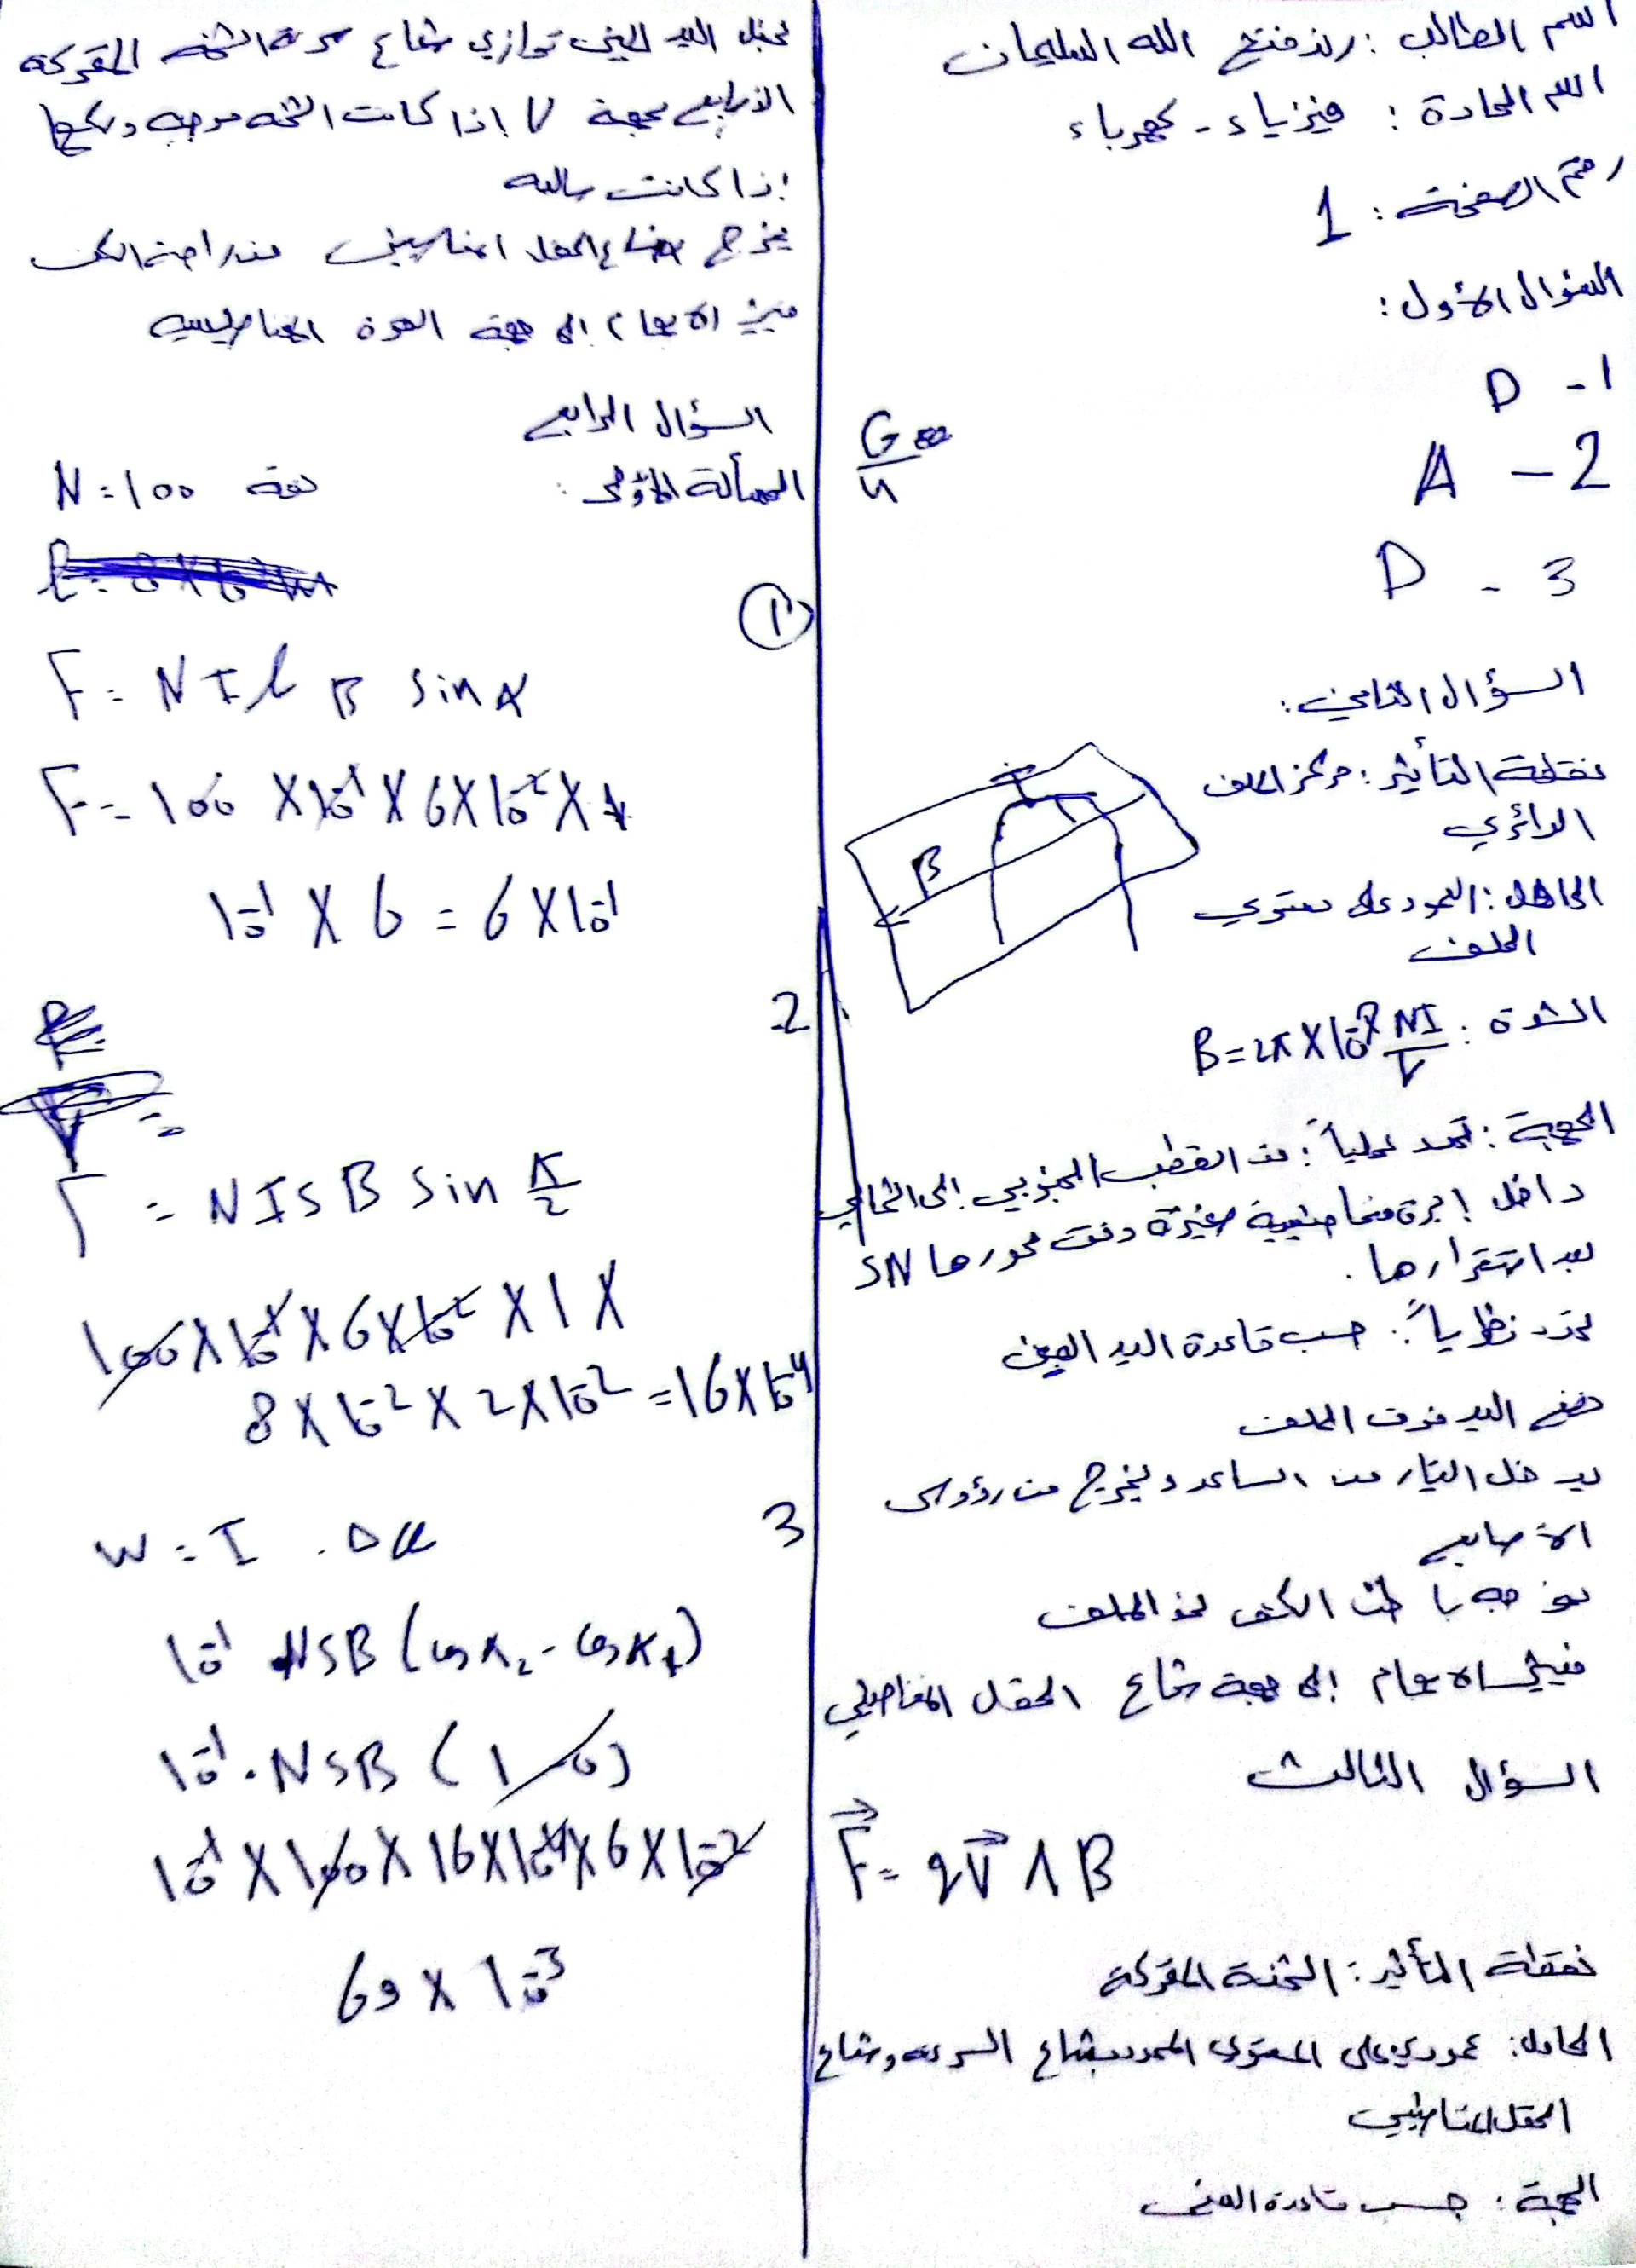 اسم الطالب : رند فتح الله السليمان
اسم المادة : فيزياء - كهرباء
رقم الصفحة : 1
السؤال الأول :
1 - D
2 - A
3 - D
السؤال الثاني :
نقطة التأثير : مركز الملف
الدائري
الحامل : العمود على مستوي
الملف
B
الشدة : B = 2π × 10⁻⁷ NI/r
الجهة : تحدد عملياً : من القطب الجنوبي إلى الشمالي
داخل إبرة مغناطيسية صغيرة وفق محورها SN
بعد استقرارها .
تحدد نظرياً : حسب قاعدة اليد اليمنى
نضع اليد فوق الملف
يدخل التيار من الساعد ويخرج من رؤوس
الأصابع
نوجه باطن الكف نحو الملف
فيشير الابهام إلى جهة شعاع الحقل المغناطيسي
السؤال الثالث
F = qV ∧ B
نقطة التأثير : الشحنة المتحركة
الحامل : عمودي على المستوي المحدد بشعاع السرعة وشعاع
الحقل المغناطيسي
الجهة : حسب قاعدة اليمنى
نجعل اليد اليمنى توازي شعاع سرعة الشحنة المتحركة
الاصابع بجهة V اذا كانت الشحنة موجبه وبعكسها
إذا كانت سالبه
يخرج شعاع الحقل المغناطيسي من راحة الكف
فيشير الابهام إلى جهة القوة المغناطيسية
السؤال الرابع
المسألة الأولى : N = 100 لفة
1
F = N I L B sin α
F = 100 × 10⁻¹ × 6 × 10⁻² × 1
10⁻¹ × 6 = 6 × 10⁻¹
2
Γ = N I S B sin π/2
100 × 10⁻¹ × 6 × 10⁻² × 1 ×
8 × 10⁻² × 2 × 10⁻² = 16 × 10⁻⁴
3
W = I . Δ
10⁻¹ NSB (cos α₂ - cos α₁)
10⁻¹ . NSB (1 - 0)
10⁻¹ × 100 × 16 × 10⁻⁴ × 6 × 10⁻²